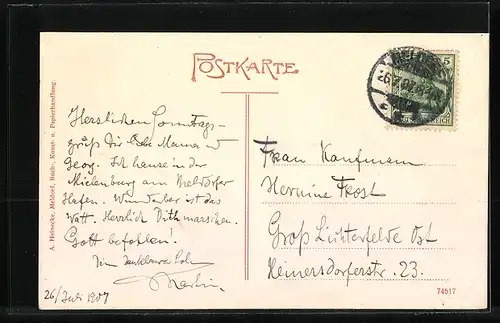 POSTKARTE
Herzlichen Sonntags-
gruß Dir liebe Mama u
Georg. Ich hause in der
Mielenburg am Meldorfer
Hafen. Wunderbar ist das
Watt. Herzlich Dithmarschen.
Gott befohlen!
Dein dankbarer Sohn
Martin
26/Juli 1907
Frau Kaufmann
Hermine Frost
Groß Lichterfelde Ost
Heinersdorferstr. 23.
A. Heinecke, Meldorf, Buch-, Kunst- u. Papierhandlung.
74517
MELDORF
26.7.07
5
REICH